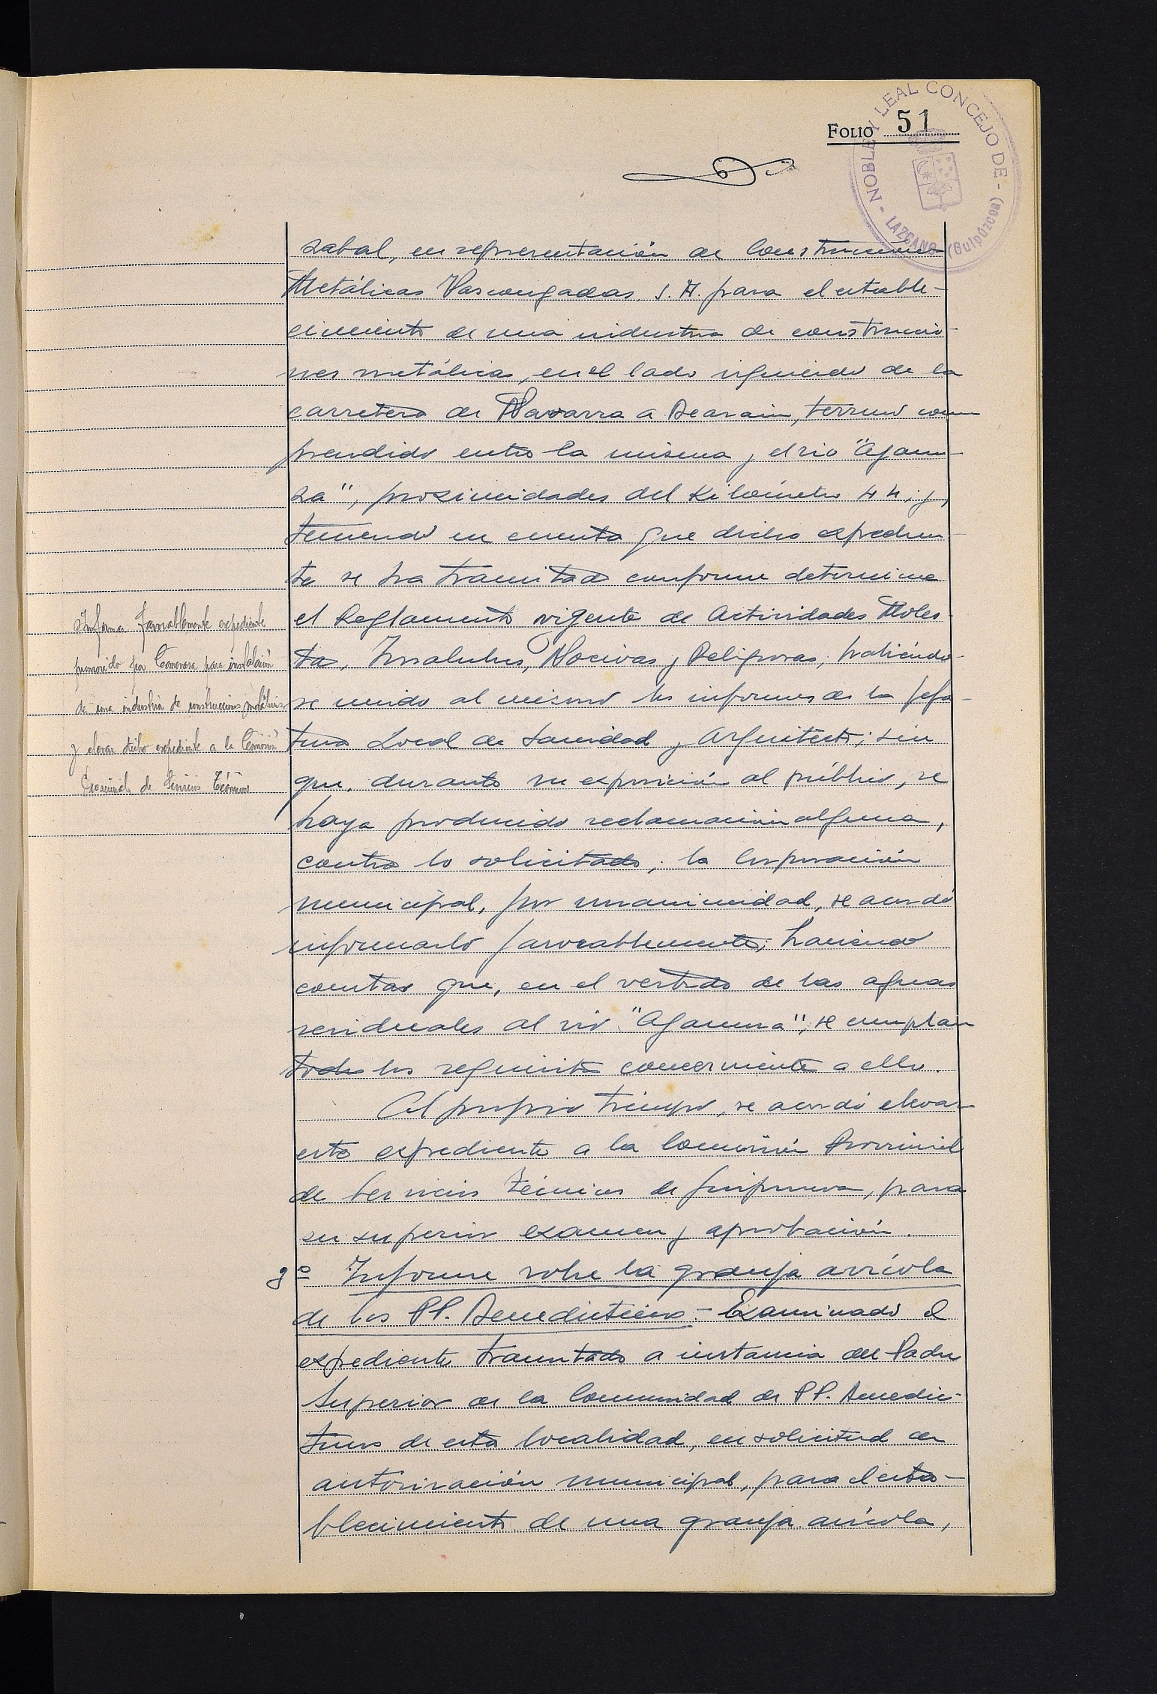 FOLIO 51
NOBLE Y LEAL CONCEJO DE - LAZCANO (Guipúzcoa) -
zabal, en representación de Construcciones
Metálicas Vascongadas S.A. para el estable-
cimiento de una industria de construccio-
nes metálicas, en el lado izquierdo de la
carretera de Navarra a Beasain, terreno com
prendido entre la misma y el río "Agaun-
za", proximidades del Kilómetro 44, y,
teniendo en cuenta que dicho expedien-
te se ha tramitado conforme determina
el Reglamento vigente de Actividades Moles-
tas, Insalubres, Nocivas y Peligrosas, habiéndo-
se unido al mismo los informes de la Jefa-
tura Local de Sanidad y Arquitecto; sin
que, durante su exposición al público, se
haya producido reclamación alguna,
contra lo solicitado; la Corporación
municipal, por unanimidad, se acordó
informarlo favorablemente; haciendo
constar que, en el vertido de las aguas
residuales al río "Agaunza", se cumplan
todos los requisitos concerniente a ello.
Al propio tiempo, se acordó elevar
este expediente a la Comisión Provincial
de Servicios Técnicos de Guipúzcoa, para
su superior examen y aprobación.
Informa favorablemente expediente
promovido por Comevasa para instalación
de una industria de construcciones metálicas
y elevar dicho expediente a la Comisión
Provincial de Servicios Técnicos
3º Informe sobre la granja avícola
de los PP. Benedictinos.- Examinado el
expediente tramitado a instancia del Padre
Superior de la Comunidad de PP. Benedic-
tinos de esta localidad, en solicitud de
autorización municipal, para el esta-
blecimiento de una granja avícola,